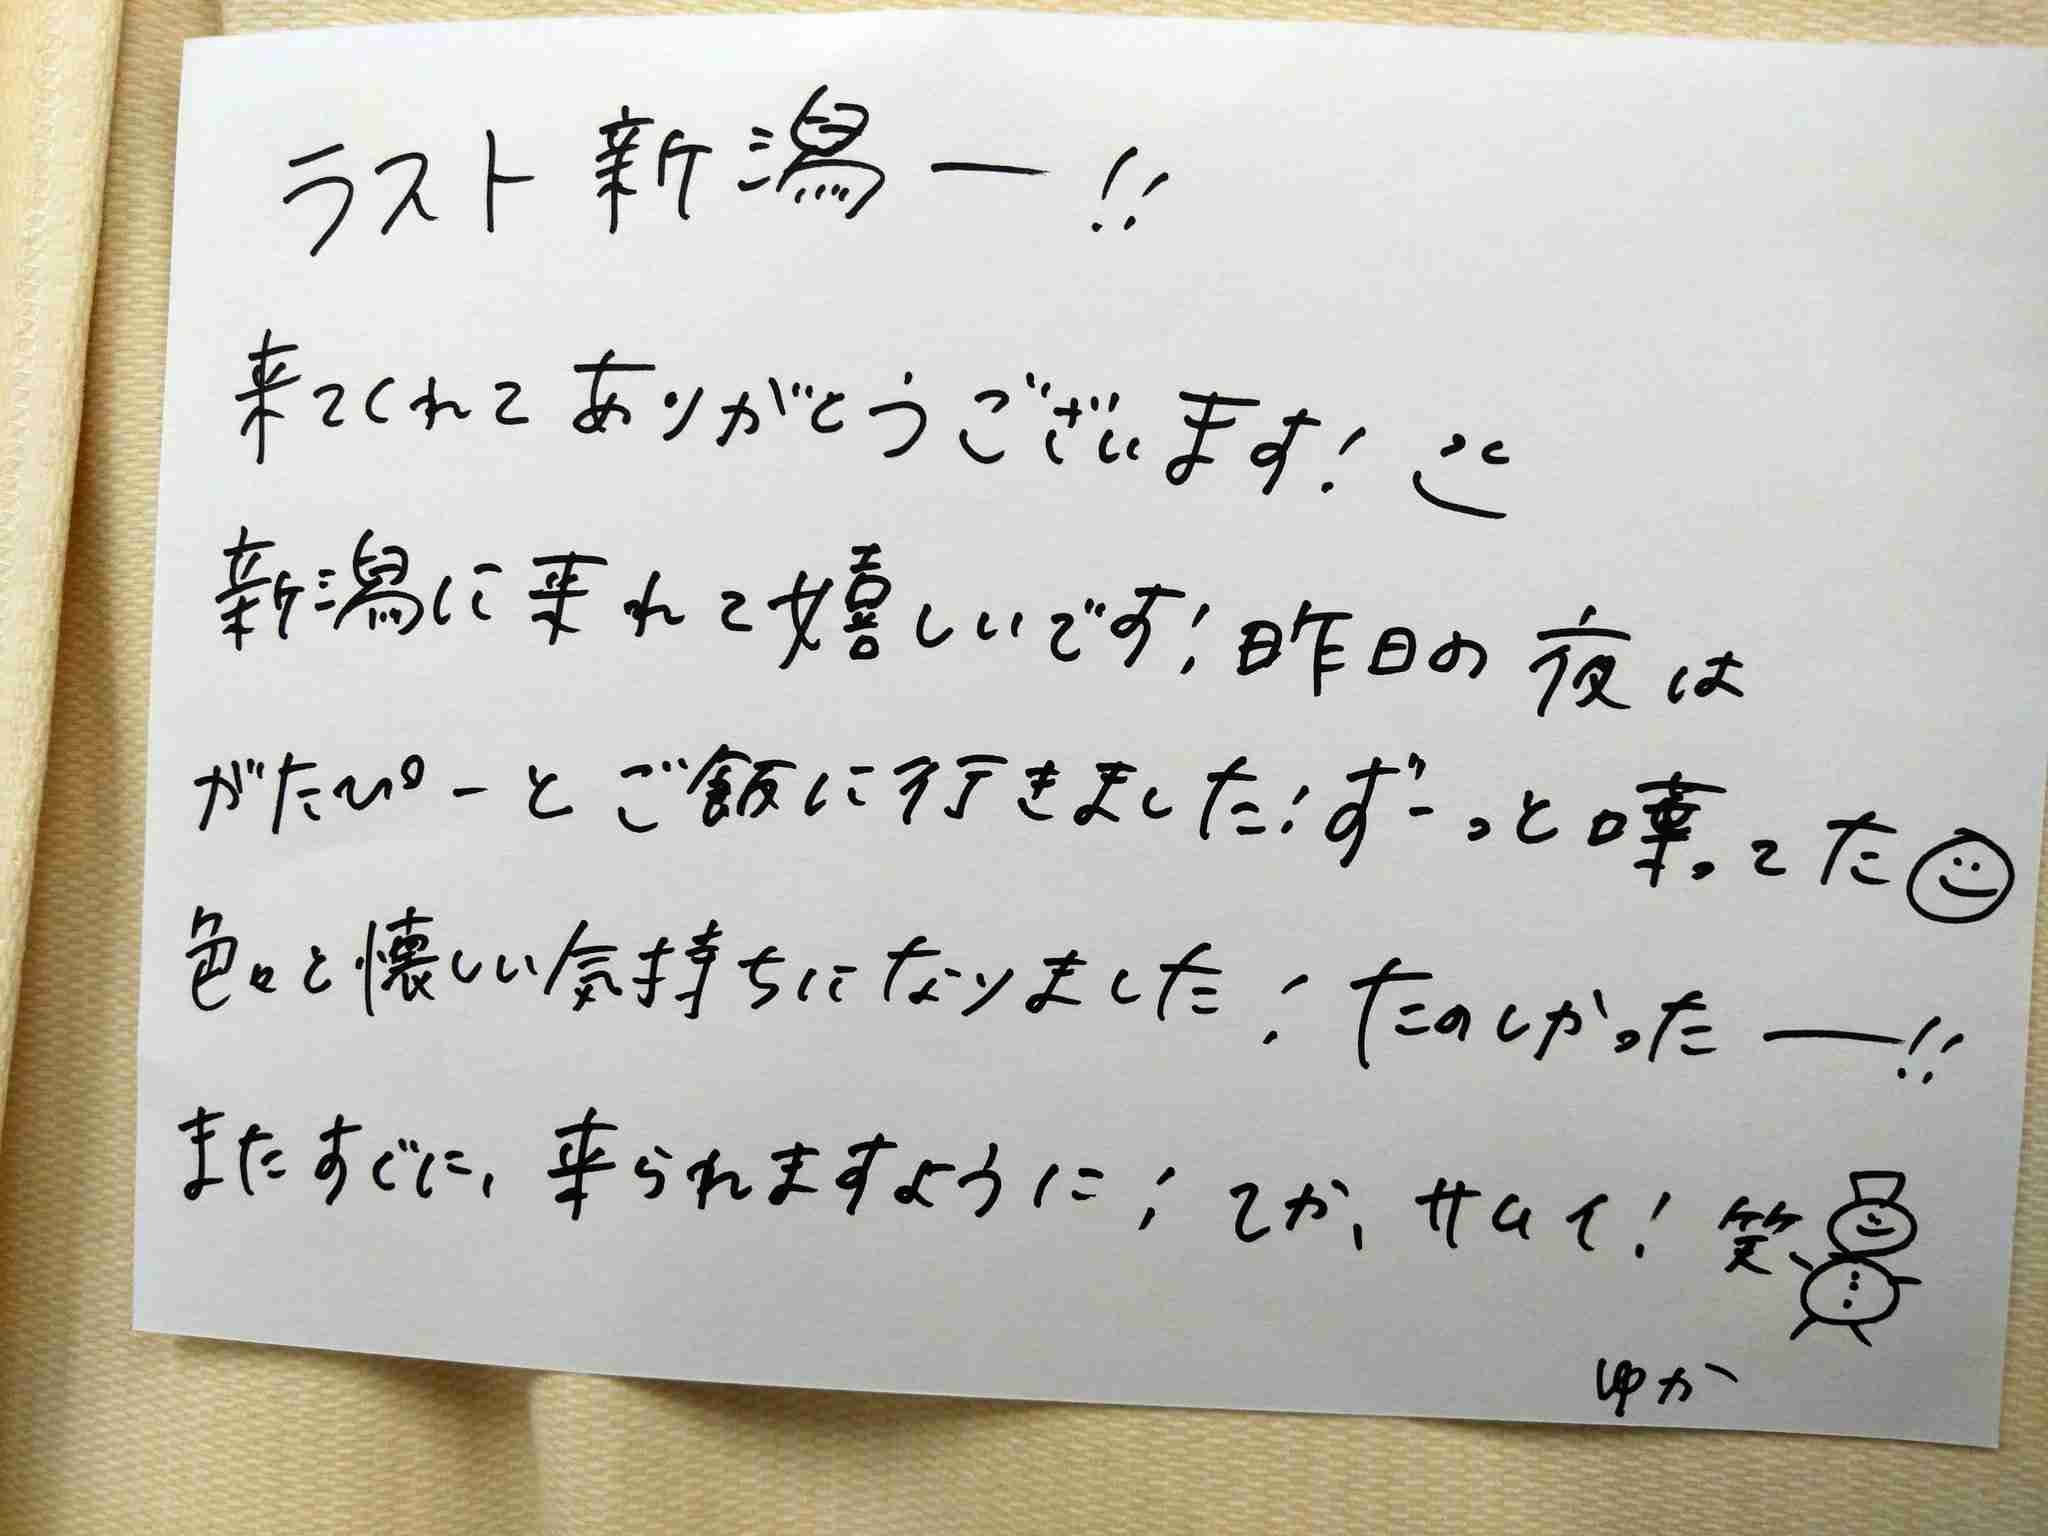 ラスト新潟ー!!
来てくれてありがとうございます!
新潟に来れて嬉しいです!昨日の夜は
がたぴーとご飯に行きました!ずーっと喋ってた
色々と懐しい気持ちになりました!たのしかったー!!
またすぐに、来られますように!てか、サムイ!笑
ゆか